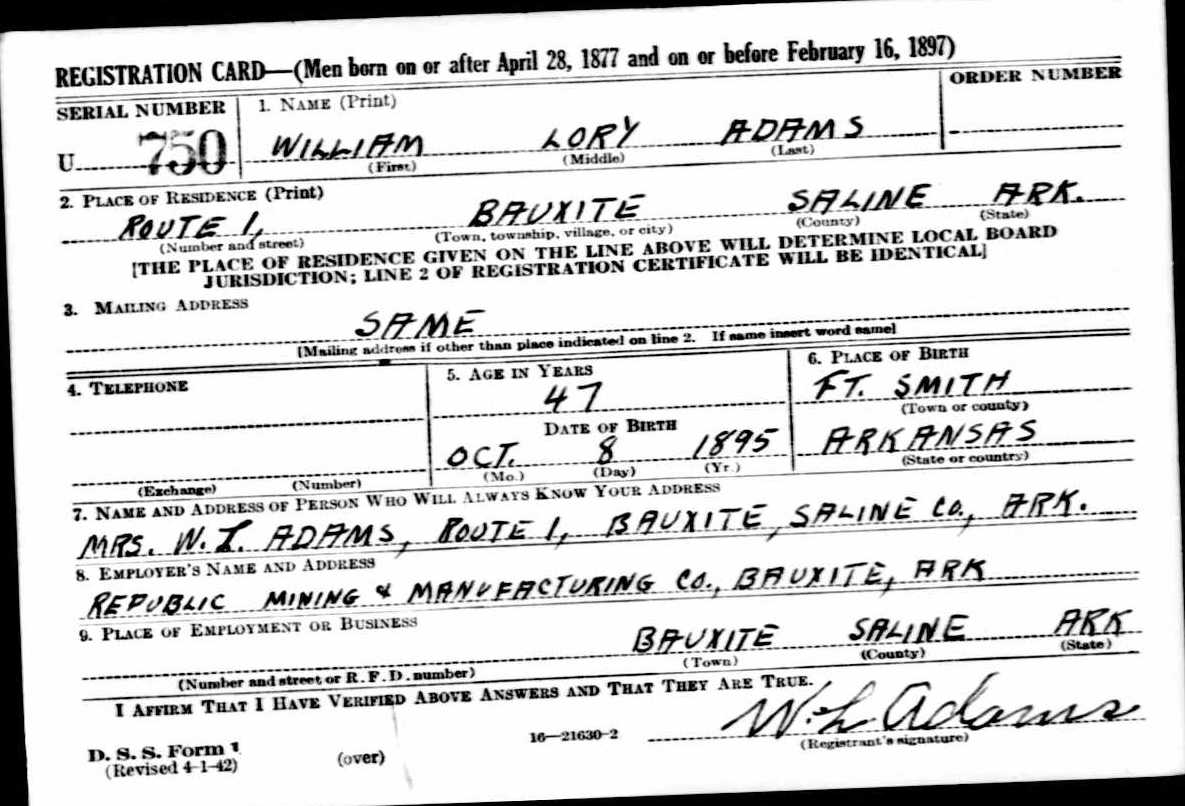 REGISTRATION CARD—(Men born on or after April 28, 1877 and on or before February 16, 1897)
SERIAL NUMBER 1. NAME (Print) ORDER NUMBER
U 750 WILLIAM LORY ADAMS
(First) (Middle) (Last)
2. PLACE OF RESIDENCE (Print)
ROUTE 1, BAUXITE SALINE ARK.
(Number and street) (Town, township, village, or city) (County) (State)
[THE PLACE OF RESIDENCE GIVEN ON THE LINE ABOVE WILL DETERMINE LOCAL BOARD
JURISDICTION; LINE 2 OF REGISTRATION CERTIFICATE WILL BE IDENTICAL]
3. MAILING ADDRESS
SAME
[Mailing address if other than place indicated on line 2. If same insert word same]
4. TELEPHONE 5. AGE IN YEARS 6. PLACE OF BIRTH
47 FT. SMITH
(Town or county)
DATE OF BIRTH
OCT. 8 1895 ARKANSAS
(Mo.) (Day) (Yr.) (State or country)
(Exchange) (Number)
7. NAME AND ADDRESS OF PERSON WHO WILL ALWAYS KNOW YOUR ADDRESS
MRS. W. L. ADAMS, ROUTE 1, BAUXITE, SALINE CO., ARK.
8. EMPLOYER'S NAME AND ADDRESS
REPUBLIC MINING & MANUFACTURING CO., BAUXITE, ARK
9. PLACE OF EMPLOYMENT OR BUSINESS
BAUXITE SALINE ARK
(Number and street or R. F. D. number) (Town) (County) (State)
I AFFIRM THAT I HAVE VERIFIED ABOVE ANSWERS AND THAT THEY ARE TRUE.
W. L Adams
D. S. S. Form 1 16—21630-2 (Registrant's signature)
(Revised 4-1-42) (over)